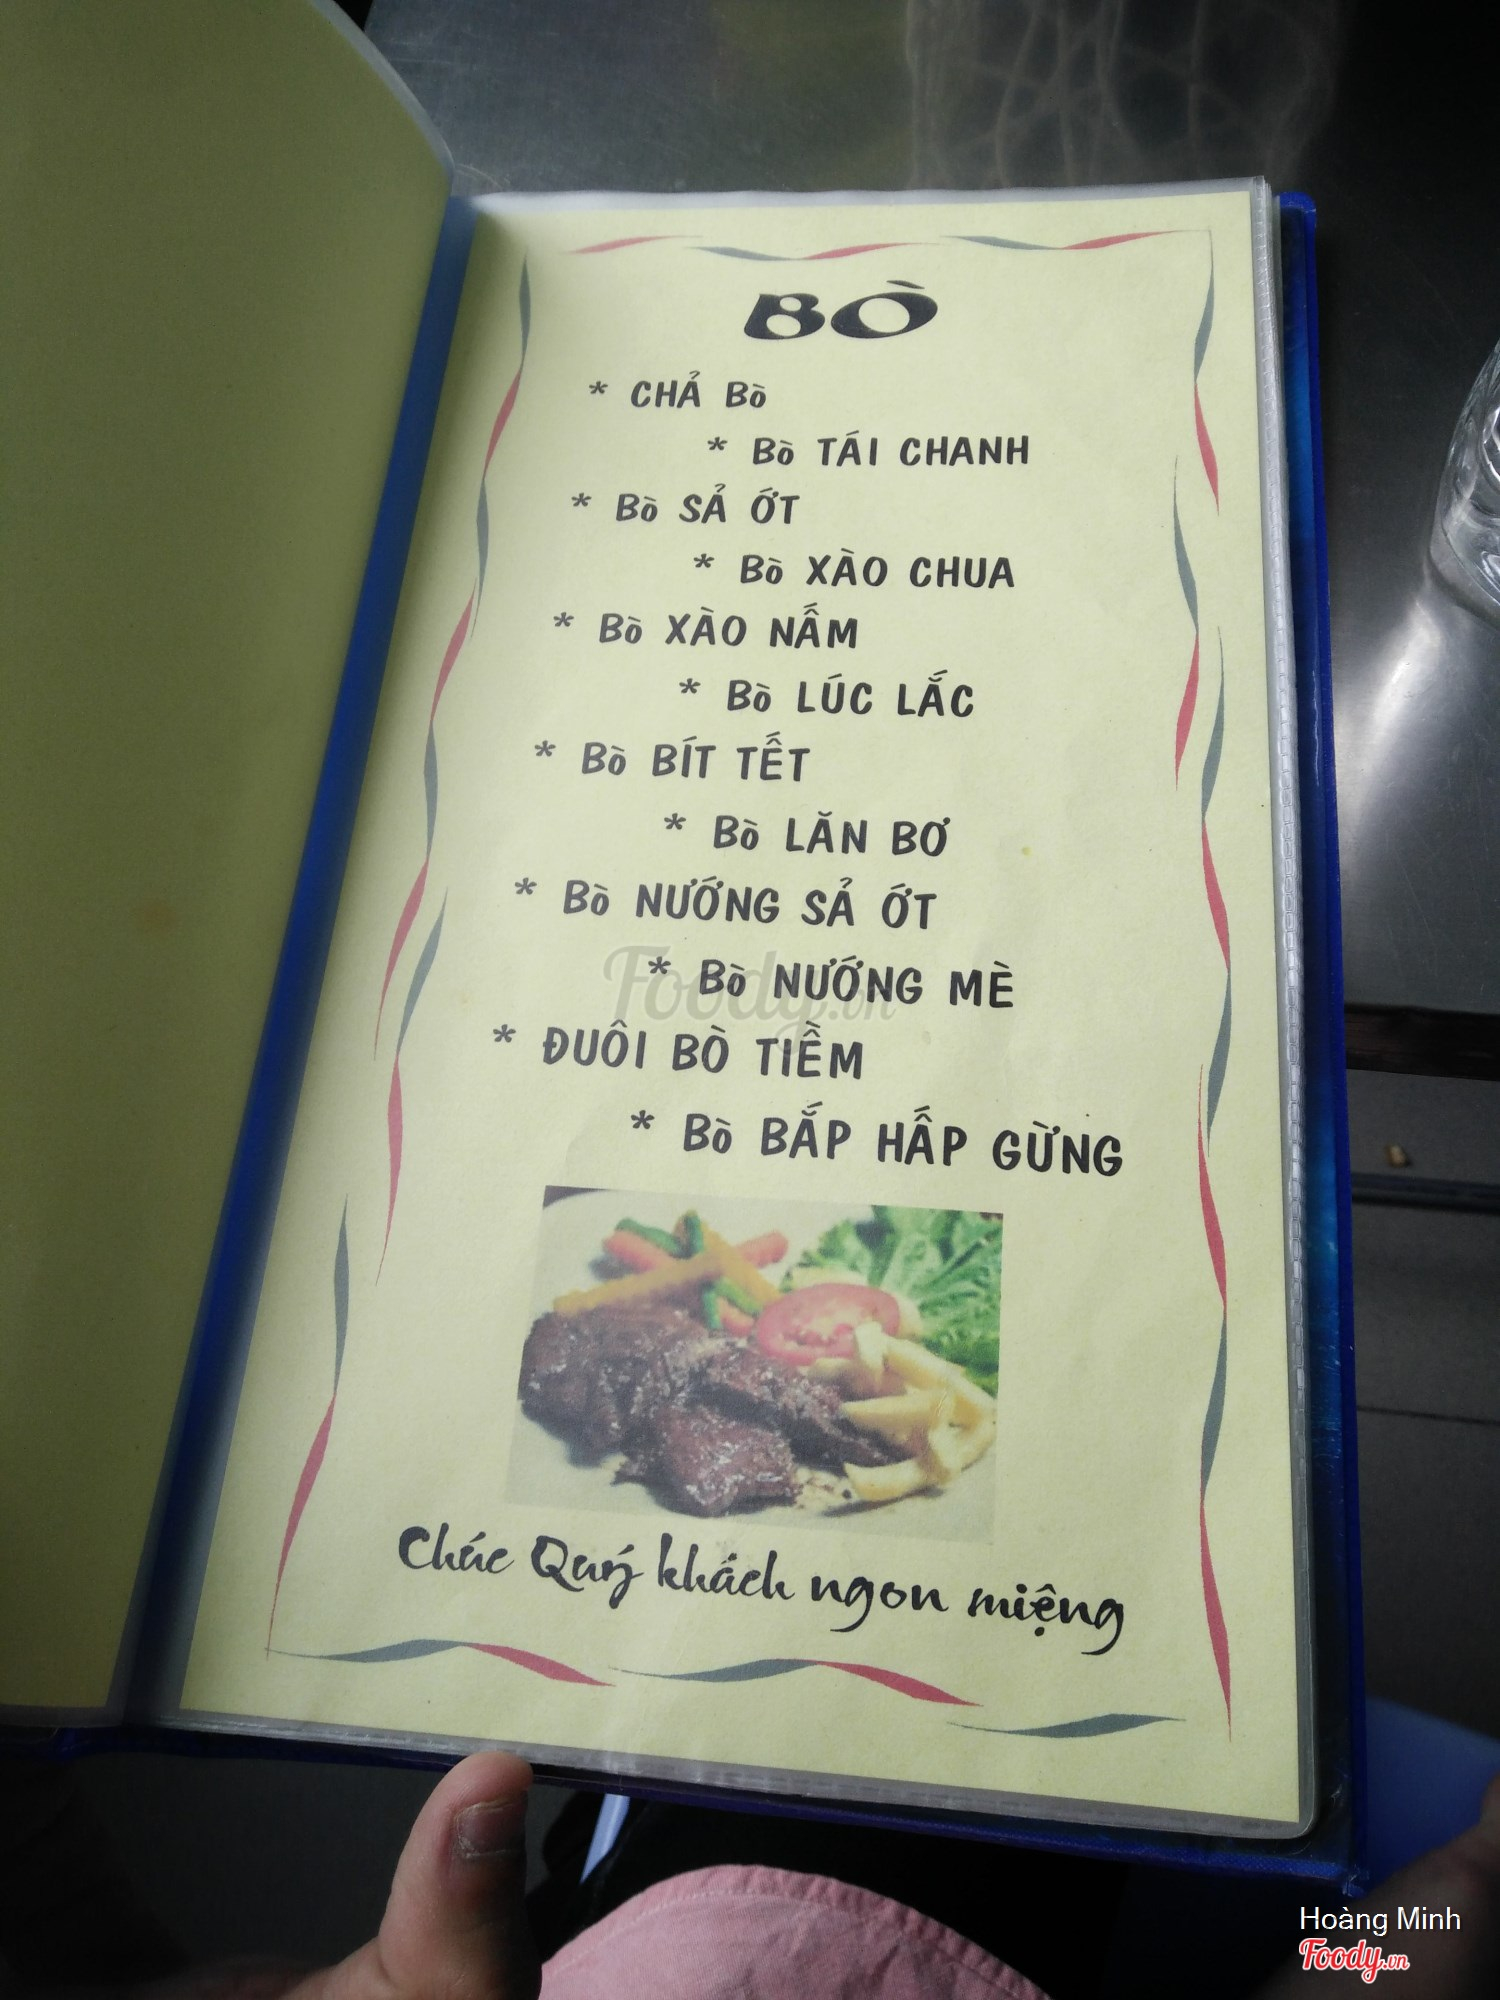 BÒ
* CHẢ Bò
* Bò TÁI CHANH
* Bò SẢ ỚT
* Bò XÀO CHUA
* Bò XÀO NẤM
* Bò LÚC LẮC
* Bò BÍT TẾT
* Bò LĂN BƠ
* Bò NƯỚNG SẢ ỚT
* Bò NƯỚNG MÈ
Foody.vn
* ĐUÔI BÒ TIỀM
* Bò BẮP HẤP GỪNG
Chúc Quý khách ngon miệng
Hoàng Minh
Foody.vn